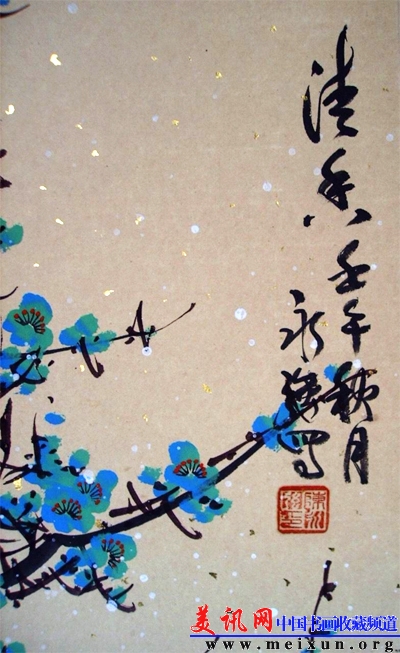 清香 壬午秋月
永強写
美讯网 中国书画收藏频道
www.meixun.org